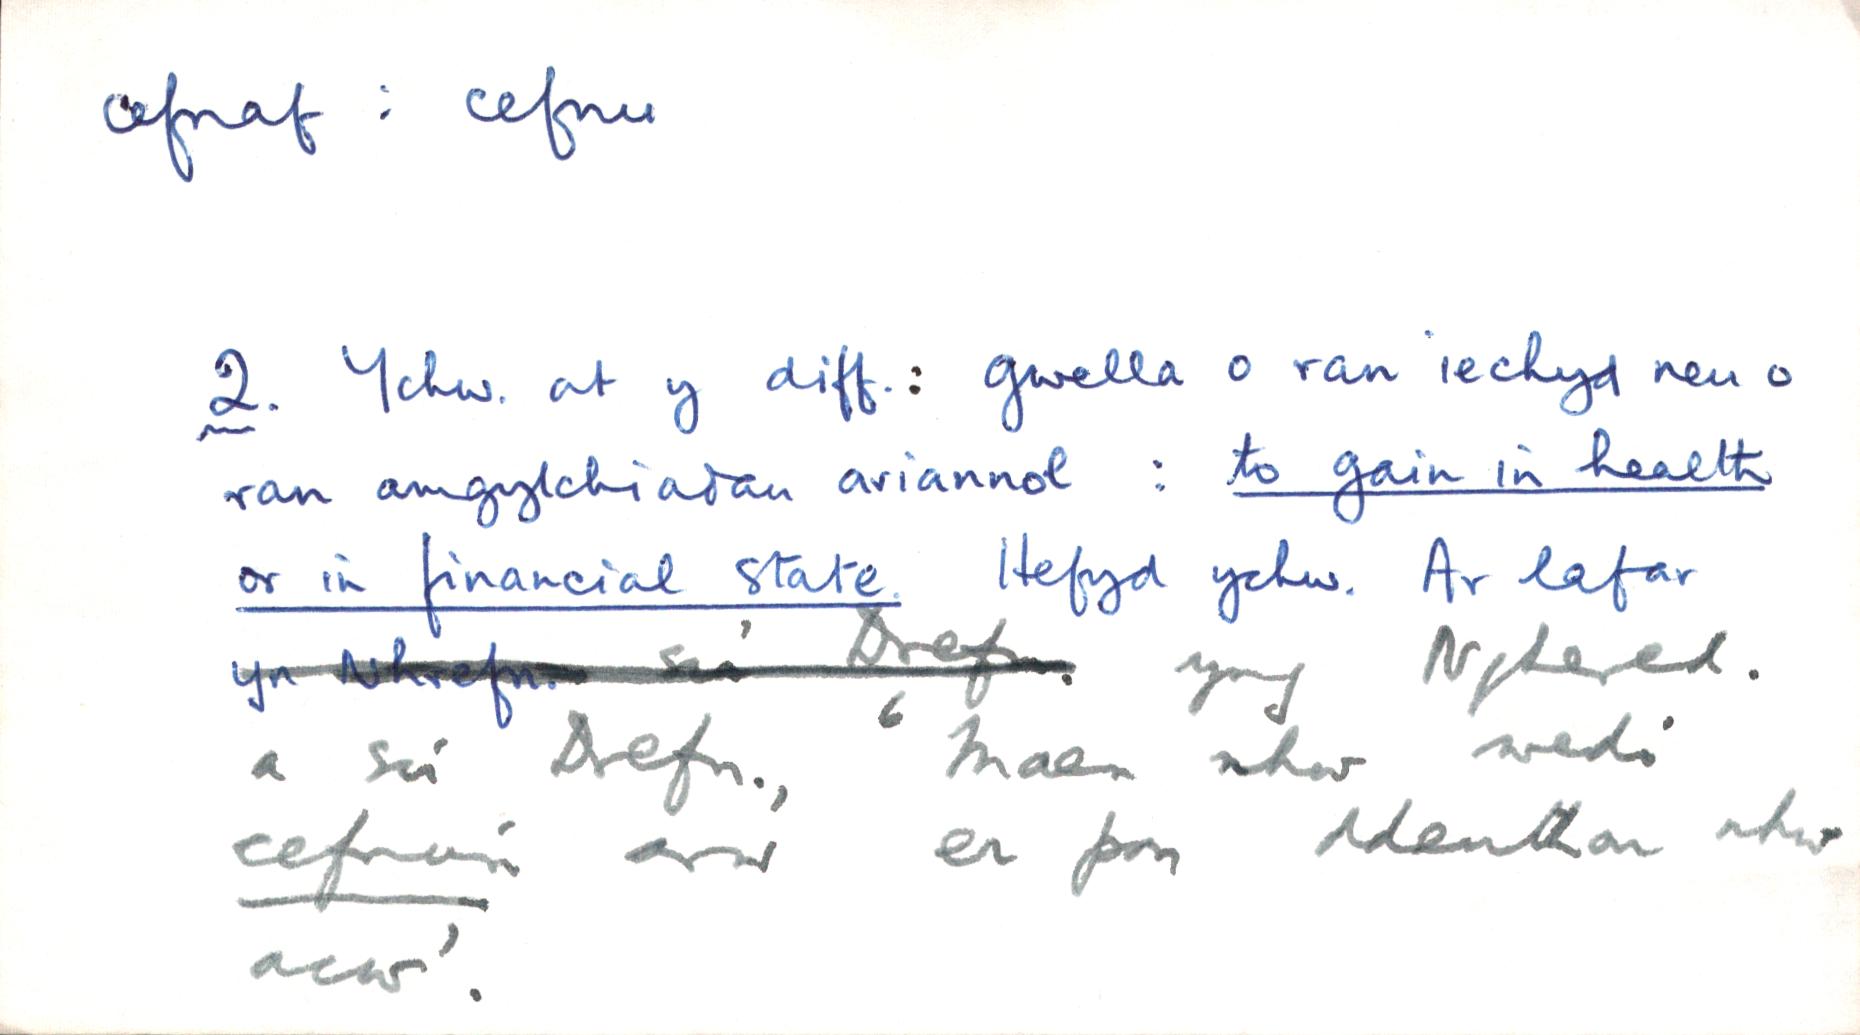 cefnaf : cefnu
2. Ychw. at y diff.: gwella o ran iechyd neu o
ran amgylchiadau ariannol : to gain in health
or in financial state. Hefyd ychw. Ar lafar
yn Nhrefn. sir Drefn. yng Nghered.
a sir Drefn., 'Maen nhw wedi
cefnu'n arw er pan ddeuthon nhw
acw'.